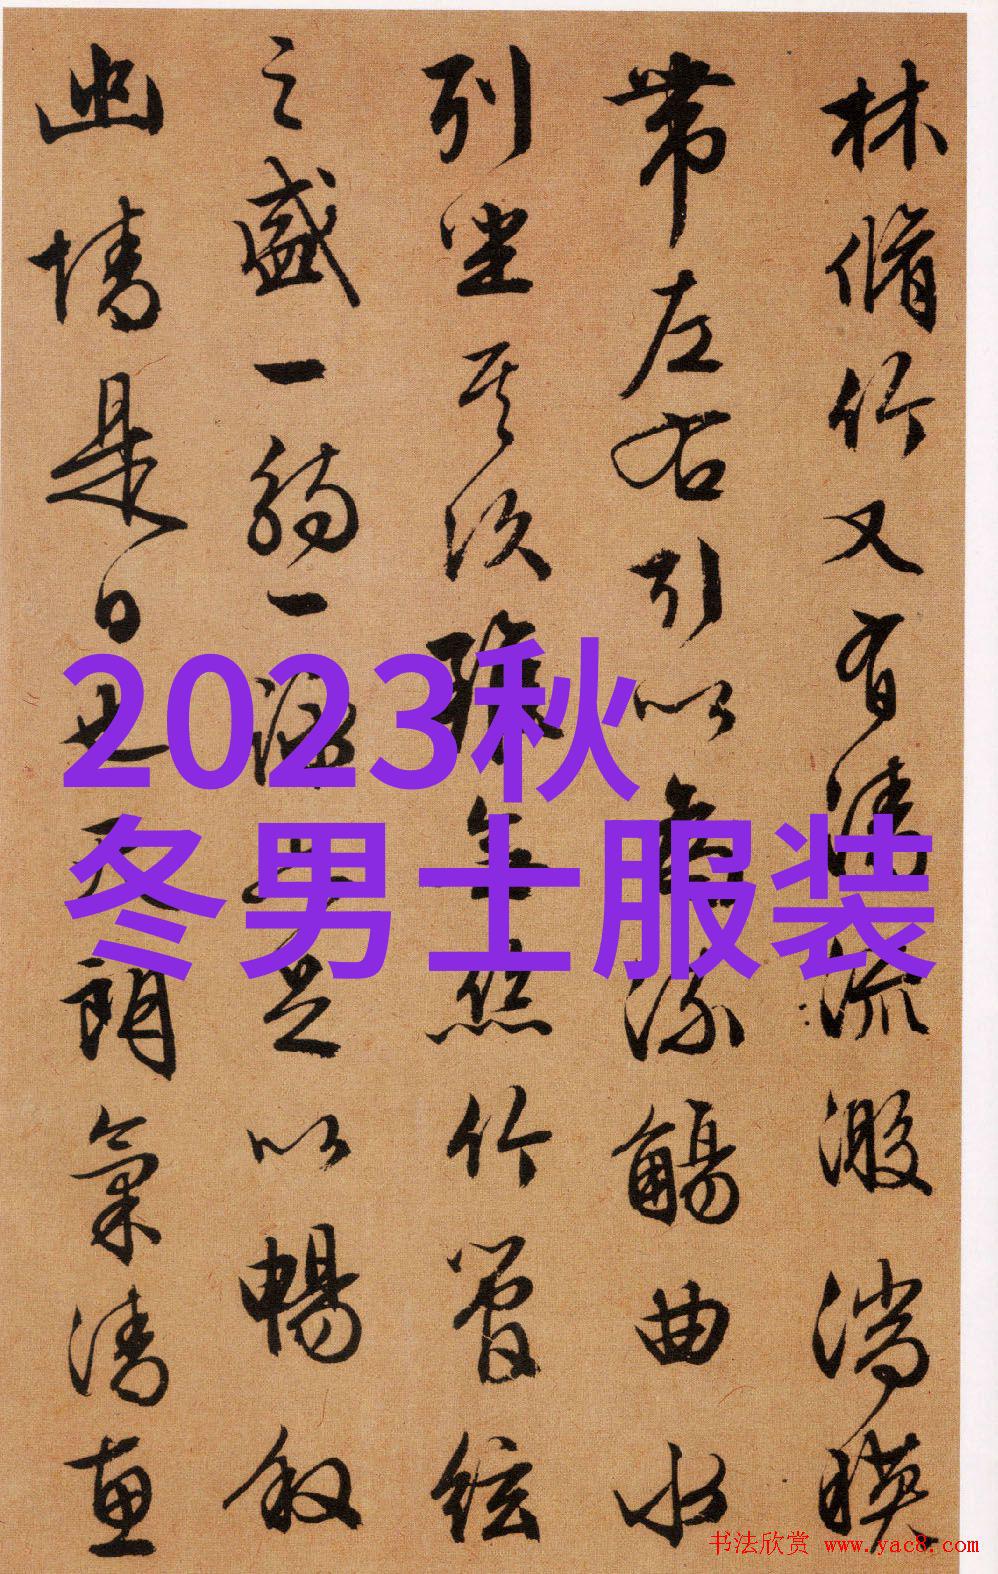 林脩竹又有清流激湍暎
帶左右引以為流觴曲水
列坐其次雖無絲竹管絃
之盛一觴一詠亦足以暢叙
幽情是日也天朗氣清惠
2023秋
冬男士服装
书法欣赏 www.yac8.com